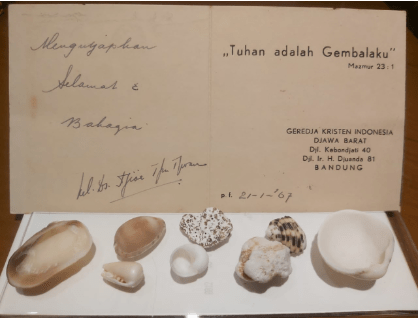 Mengutjapkan
Selamat &
Bahagia
kel. Dr. Tjioe
„Tuhan adalah Gembalaku"
Mazmur 23 : 1
GEREDJA KRISTEN INDONESIA
DJAWA BARAT
Djl. Kebondjati 40
Djl. Ir. H. Djuanda 81
BANDUNG
p.f. 21-1-'67